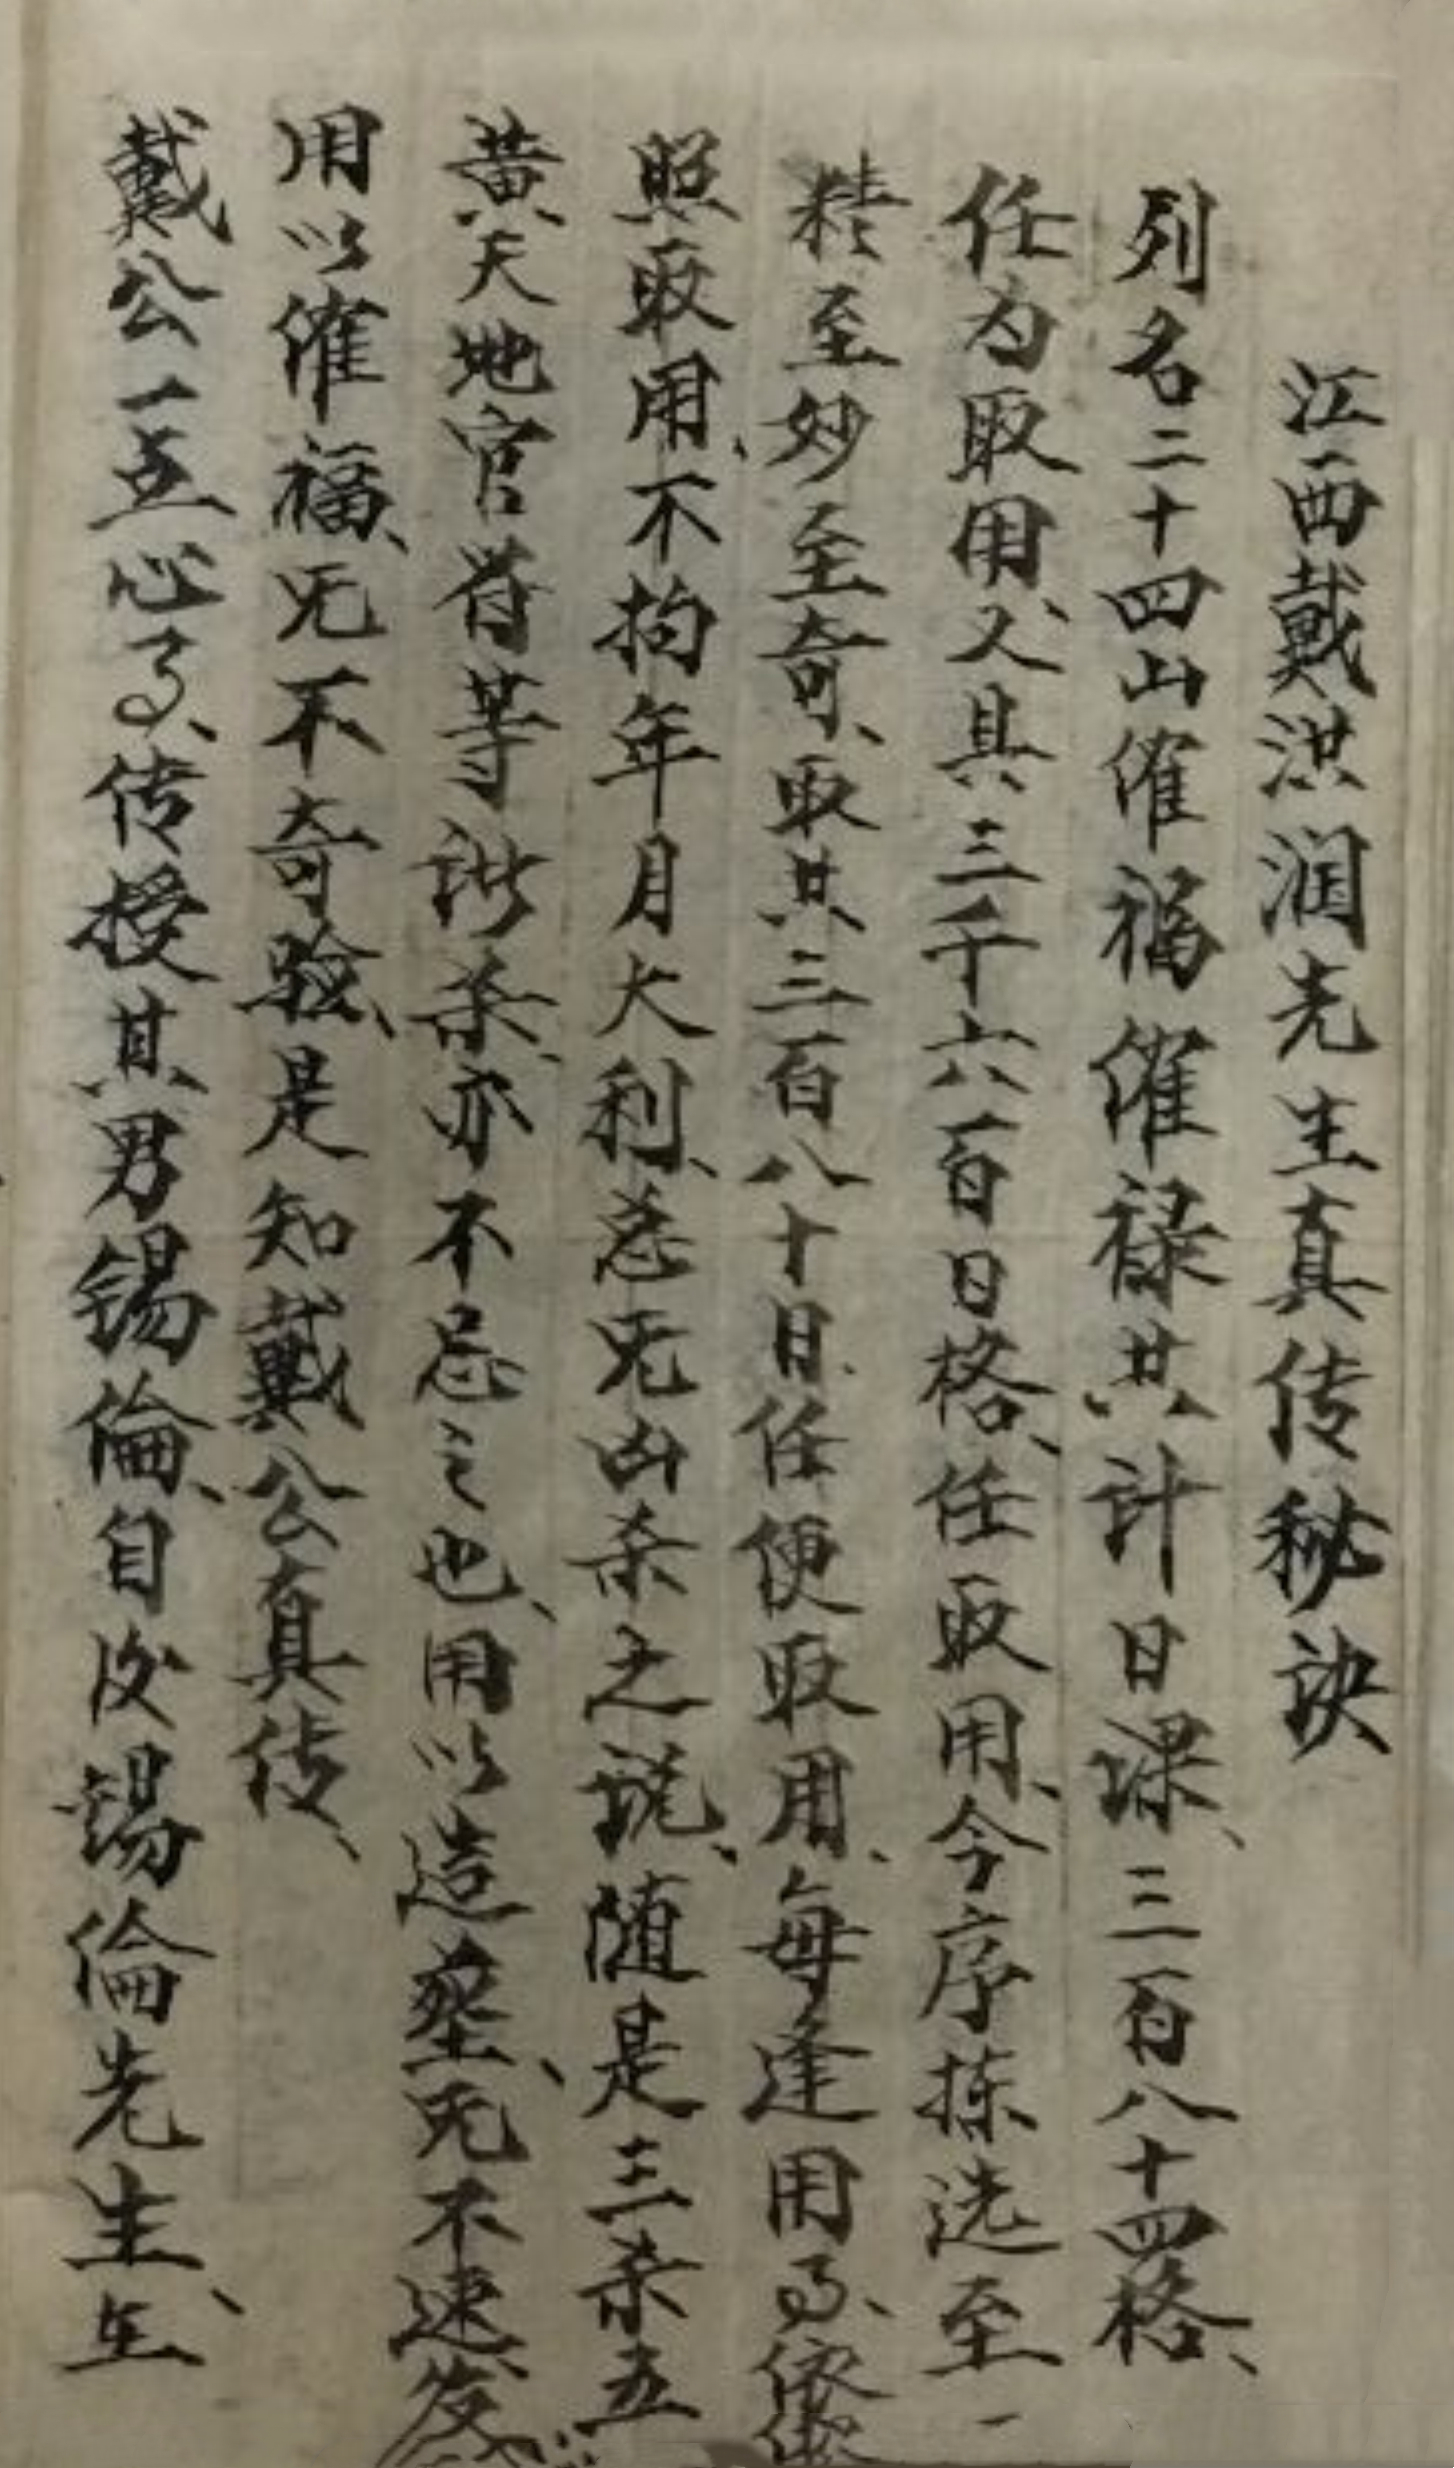 江西戴洪润先生真传秘诀
列名二十四山催福催禄共计日课、三百八十四格、
任为取用、又具三千六百日格、任取用、今序拣选至一
精至妙至奇、取共三百八十日任便取用、每逢用事、依
照取用、不拘年月大利、总无凶杀之说、随是三杀五
黄天地官符等诸杀、亦不忌之也、用以造葬、无不速发
用以催福、无不奇验、是知戴公真传、
戴公一点心事、传授其男锡倫、自后锡倫先生、生